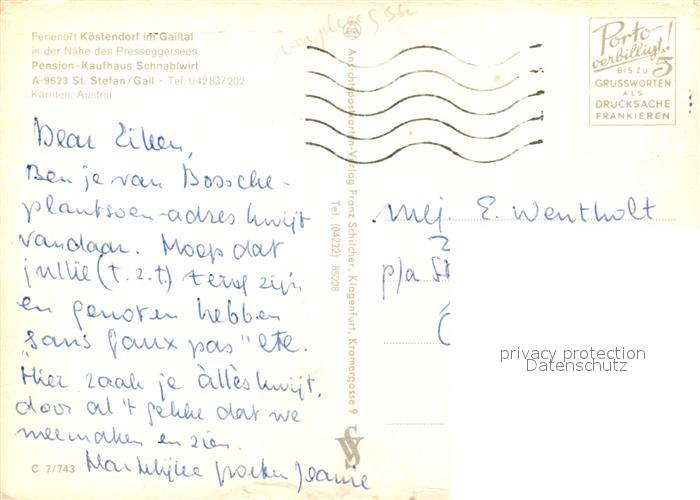 Ferienort Köstendorf im Gailtal
in der Nähe des Presseggersees
Pension-Kaufhaus Schnablwirt
A-9623 St. Stefan/Gail · Tel. 04283/202
Kärnten, Austria
Porto
verbilligt!
BIS ZU 5
GRUSSWORTEN
ALS
DRUCKSACHE
FRANKIEREN
Dear
Ben je van Bossche-
plantsoen-adres kwijt
vandaar. Hoop dat
jullie (t.z.t.) terug zijn
en genoten hebben
"sans faux pas" etc.
Hier raak je àllès kwijt,
door al 't gekke dat we
meemaken en zien.
Hartelijke groeten Jeanne
C 7/743
Ansichtspostkarten-Verlag Franz Schilcher, Klagenfurt, Kramergasse 9
Tel. (04222) 85228
Mej. E. Wentholt
p/a
privacy protection
Datenschutz